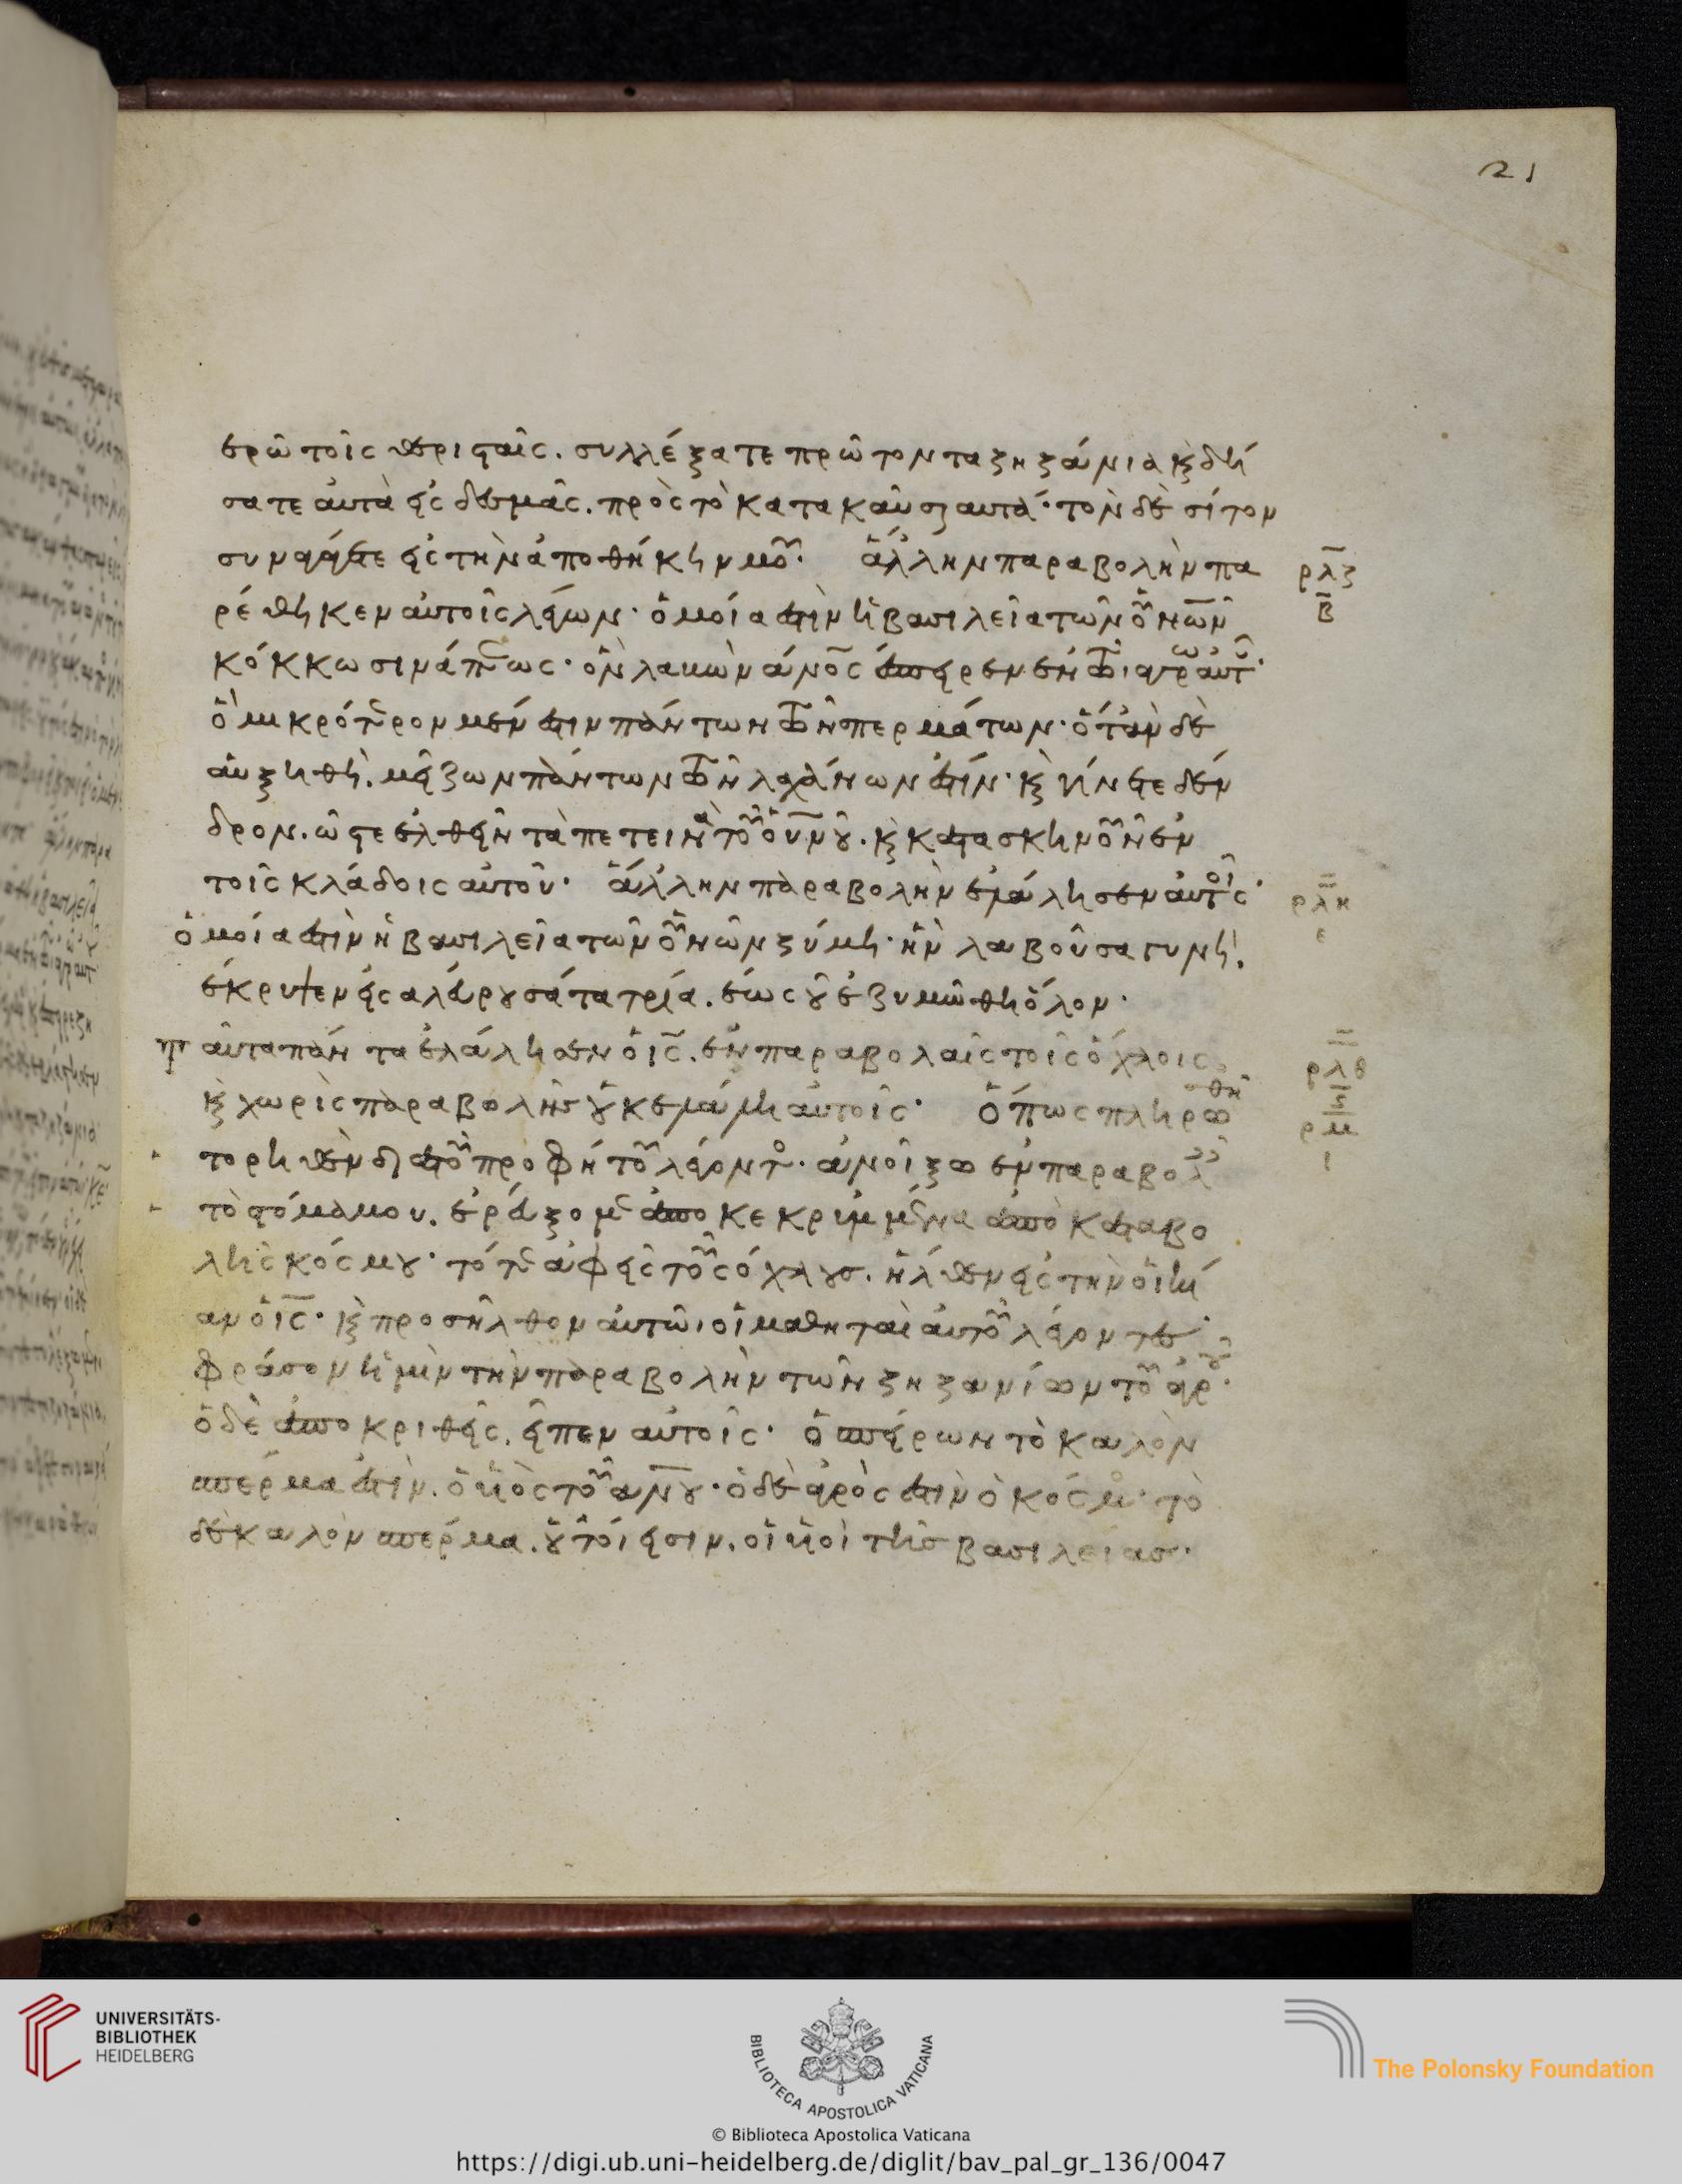 21
ἐρῶ τοῖς θερισταῖς. συλλέξατε πρῶτον τα ζηζάνια κ̀ δή
σατε ἀυτὰ εἰς δεσμὰς. πρὸς τὸ κατακαῦσαι αυτά· τὸν δὲ σίτον
συναγάγετε εἰς τὴν ἀποθήκην μοῦ· ἄλλην παραβολὴν πα
ρλζ
β
ρέθηκεν αὐτοῖς λέγων· ὁμοία ἐστὶν ἡ βασιλεία τῶν οὐνῶν
κόκκω σινάπεως· ὃν λαβὼν ἄνος ἔσπειρεν ἐν τῶ ἀγρῶ αὐτοῦ·
ὃ μικρότερον μέν ἐστιν πάντων τῶν σπερμάτων· ὅταν δὲ
αὐξηθῆ. μείζων πάντων τῶν λαχάνων ἐστίν· κ̀ γίνεται δέν
δρον. ὥστε ἐλθεῖν τὰ πετεινὰ τοῦ οὐνοῦ. κ̀ κατασκηνοῦν ἐν
τοῖς κλάδοις αὐτοῦ· ἄλλην παραβολὴν ἐλάλησεν αὐτοῖς·
ρλη
ε
ὁμοία ἐστὶν ἡ βασιλεία τῶν οὐνῶν ζύμη· ἣν λαβοῦσα γυνὴ.
ἔκρυψεν εἰς αλεύρου σάτα τρία. ἕως οὗ ἐζυμώθη ὅλον·
ταῦτα πάντα ἐλάλησεν ὁ ις. ἐν παραβολαῖς τοῖς ὄχλοις.
ρλθ
ς
κ̀ χωρὶς παραβολῆς οὐκ ἐλάλη αὐτοῖς· ὅπως πληρωθῆ
ρμ
ι
το ρηθὲν διὰ τοῦ προφήτου λέγοντος· ἀνοίξω ἐν παραβολαῖς
τὸ στόμα μου. ἐρεύξομαι ἀποκεκριμμένα ἀπὸ καταβο
λῆς κόσμου· τότε ἀφεὶς τοὺς ὄχλους. ἦλθεν εἰς τὴν οἰκί
αν ὁ ις· κ̀ προσῆλθον αὐτῶ οἱ μαθηταὶ αὐτοῦ λέγοντες·
φράσον ἡμὶν τὴν παραβολὴν τῶν ζηζανίων τοῦ ἀγροῦ·
ὁ δὲ ἀποκριθεὶς. εἶπεν αὐτοῖς· ὁ σπείρων τὸ καλὸν
σπέρμα ἐστὶν. ὁ υἱὸς τοῦ ανου· ὁ δὲ ἀγρὸς ἐστὶν ὁ κόσμος· τὸ
δὲ καλὸν σπέρμα. οὗτοί εἰσιν. οἱ υἱοὶ τῆς βασιλείας·
UNIVERSITÄTS-
BIBLIOTHEK
HEIDELBERG
BIBLIOTECA APOSTOLICA VATICANA
The Polonsky Foundation
© Biblioteca Apostolica Vaticana
https://digi.ub.uni-heidelberg.de/diglit/bav_pal_gr_136/0047